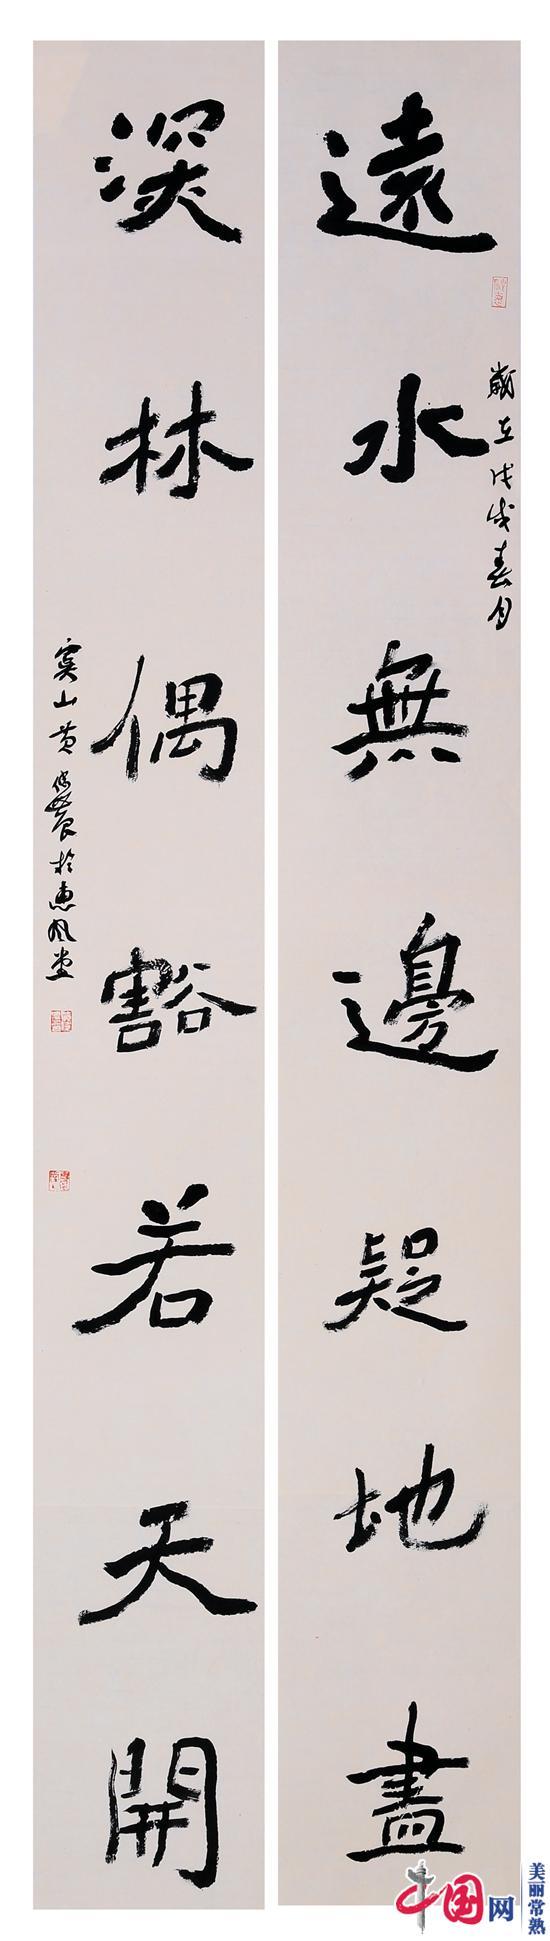 遠水無邊疑地盡
歲在戊戌春月
深林偶豁若天開
虞山黃偉農於惠風堂
中国网
美丽常熟